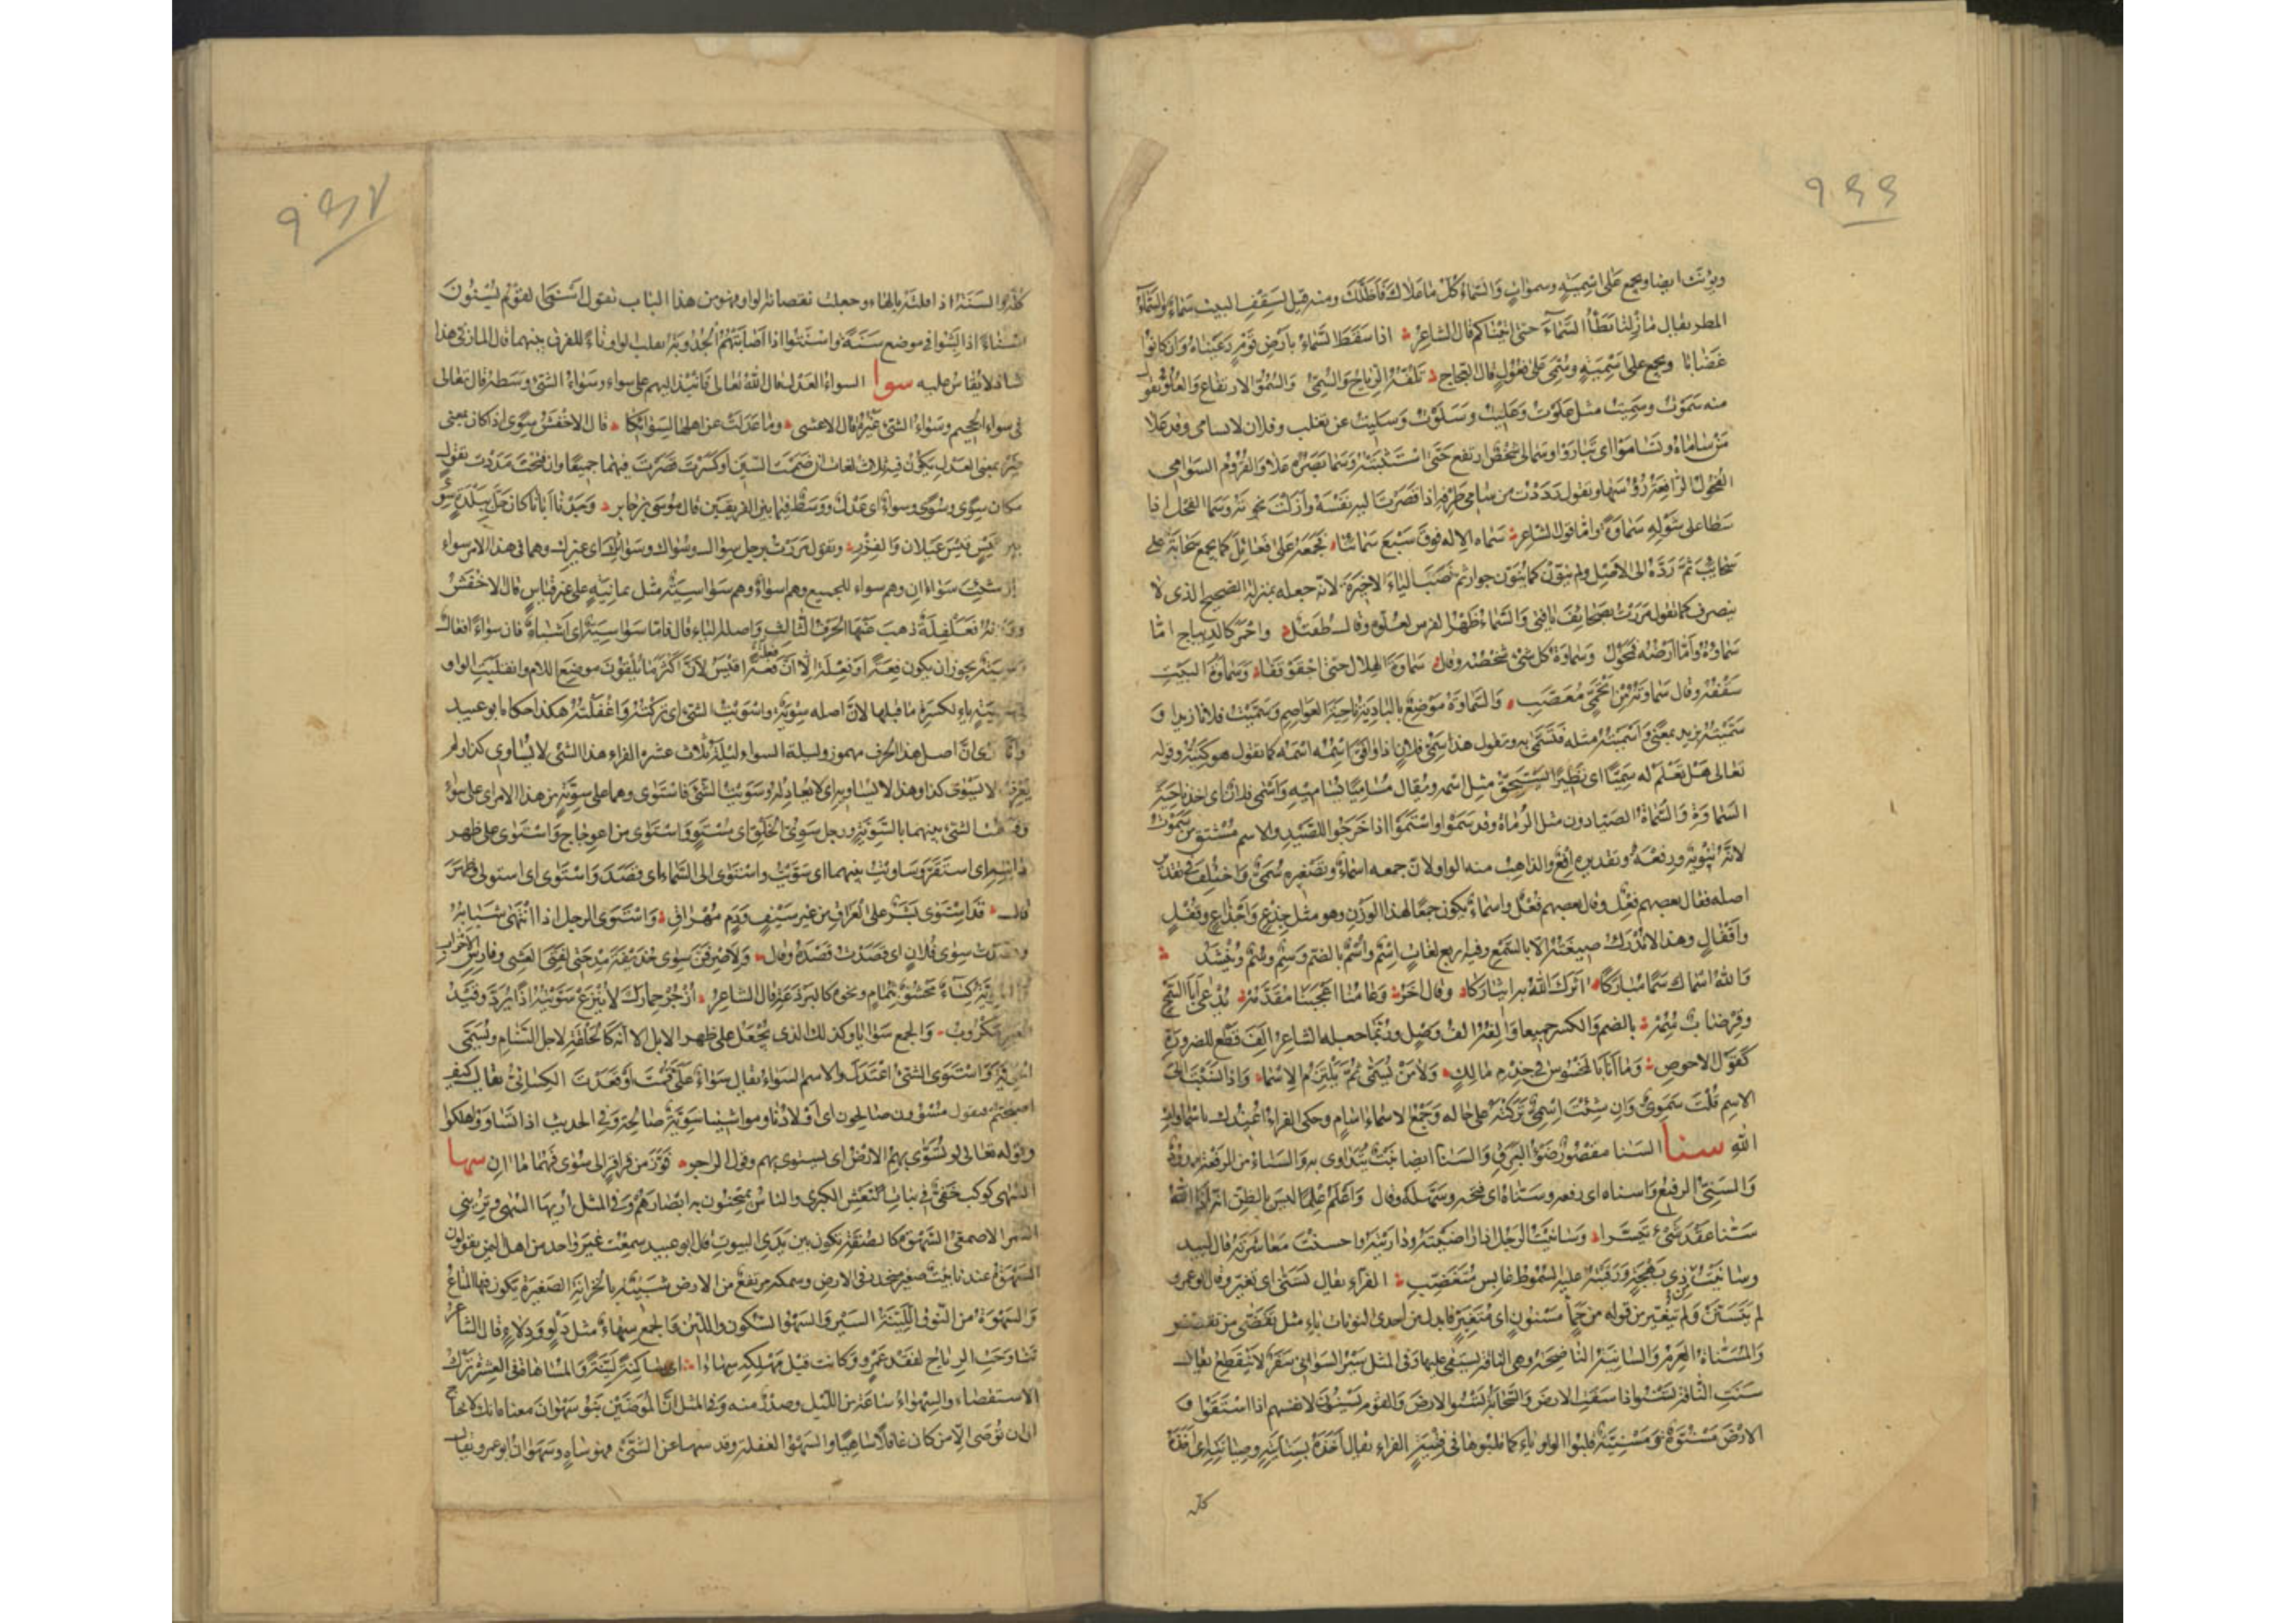 ۹۴۶
ويؤنث ايضا ويجمع على اسمية وسموات والسماء كل ما علاك فاظلك ومنه قيل لسقف البيت سماء والسماء
المطر يقال ما زلنا نطأ السماء حتى اتيناكم قال الشاعر اذا سقط السماء بارض قوم رعيناه وان كانوا
غضابا ويجمع على سمية وسمي على فعول قال العجاج تلفه الرياح والسمي والسمو الارتفاع والعلو تقول
منه سموت وسميت مثل علوت وعليت وسلوت وسليت عن ثعلب وفلان لا يسامى وقد علا
من ساماه وتساموا اى تباروا وسما لى شخص ارتفع حتى استثبته وسما بصره علا والقروم السوامى
الفحول الرافعة رؤسها وتقول رددت من سامى طرفه اذا قصرت اليه نفسه وازلت نخوته وسما الفحل اذا
سطا على شوله سماوة واما قول الشاعر سماء الاله فوق سبع سمائيا فجمعه على فعائل كما يجمع سحابة على
سحائب ثم رده الى الاصل ولم ينون كما ينون جوار ثم نصب الياء الاخيرة لانه جعله بمنزلة الصحيح الذى لا
ينصرف كما تقول مررت بصحائف يا فتى والسماء ظهر الفرس لعلوه وقال طفيل واحمر كالديباج اما
سماؤه واما ارضه فمحول وسماوة كل شئ شخصه وقال سماوة الهلال حتى احقوقفا وسماوة البيت
سقفه وقال سماوته من اتحمى معصب والسماوة موضع بالبادية ناحية العواصم وسميت فلانا زيدا و
سميته بزيد بمعنى واسميته مثله فتسمى به وتقول هذا سمى فلان اذا وافق اسمه اسمه كما تقول هو كنيه وقوله
تعالى هل تعلم له سميا اى نظيرا يستحق مثل اسمه ويقال مساميا يساميه واستمى فلان اى اخذ ناحية
السماوة والسماة الصيادون مثل الرماة وقد سموا واستموا اذا خرجوا للصيد والاسم مشتق من سموت
لانه تنويه ورفعة وتقديره افع والذاهب منه الواو لان جمعه اسماء وتصغيره سمى واختلف فى تقدير
اصله فقال بعضهم فعل وقال بعضهم فعل واسماء يكون جمعا لهذا الوزن وهو مثل جذع واجذاع وقفل
واقفال وهذا لا تدرك صيغته الا بالسمع وفيه اربع لغات اسم واسم بالضم وسم وسم وينشد
والله اسماك سما مباركا اثرك الله به ايثاركا وقال اخر وعامنا اعجبنا مقدمه يدعى ابا السمح
وقرضاب سمه بالضم والكسر جميعا والفه الف وصل وربما جعله الشاعر الف قطع للضرورة
كقول الاحوص وما انا بالمخسوس فى جذم مالك ولا من تسمى ثم يلتزم الاسما واذا نسبت الى
الاسم قلت سموى وان شئت اسمى تركته على حاله وجمع الاسماء اسام وحكى الفراء اعيذك باسماوات
الله سنا السنا مقصور ضوء البرق والسنا ايضا نبت يتداوى به والسناء من الرفعة ممدود
والسنى الرفيع واسناه اى رفعه وسناه اى فتحه وسهله وقال واعلم علما ليس بالظن انه اذا الله
سنا عقد شئ تيسرا وسانيت الرجل اذا راضيته وداريته واحسنت معاشرته قال لبيد
وسانيت من ذى بهجة ورقيته عليه السموط عابس متغضب الفراء يقال تسنى اى تغير وقال ابو عمرو
لم يتسن ولم يتغير من قوله من حمأ مسنون اى متغير فابدل من احدى النونات ياء مثل تقضى من تقضض
والمسناة العرم والسانية الناضحة وهى الناقة يستقى عليها وفى المثل سير السوانى سفر لا ينقطع يقال
سنت الناقة تسنو اذا سقت الارض والسحابة تسنو الارض والقوم يسنون لانفسهم اذا استقوا و
الارض مسنوة ومسنية قلبوا الواو ياء كما قلبوها فى قنية الفراء يقال اخذه بسنايته وصنايته اى اخذه
كله
۹۴۷
كله والسنة اذا قلته بالهاء وجعلت نقصانه الواو فهو من هذا الباب تقول اسنى القوم يسنون
اسناء اذا لبثوا فى موضع سنة واسنتوا اذا اصابتهم الجدوبة بقلب الواو تاء للفرق بينهما قال المازنى هذا
شاذ لا يقاس عليه سوا السواء العدل قال الله تعالى فانبذ اليهم على سواء وسواء الشئ وسطه قال تعالى
فى سواء الجحيم وسواء الشئ غيره قال الاعشى وما عدلت عن اهلها لسوائكا قال الاخفش سوى اذا كان بمعنى
غير او بمعنى العدل يكون فيه ثلاث لغات ان ضممت السين او كسرت قصرت فيهما جميعا وان فتحت مددت تقول
مكان سوى وسوى وسواء اى عدل ووسط فيما بين الفريقين قال موسى بن جابر وجدنا ابانا كان حل ببلدة سوى
بين قيس قيس عيلان والفزر وتقول مررت برجل سواك وسواك وسوائك اى غيرك وهما فى هذا الامر سواء
ان شئت سواءان وهم سواء للجميع وهم اسواء وهم سواسية مثل يمانية على غير قياس قال الاخفش
ووزنه فعلفلة ذهب عنها الحرف الثالث واصله الياء قال فاما سواسية اى اشباه فان سواء فعال
وسية يجوز ان يكون فعة او فلة الا ان فعة اقيس لان اكثر ما يلقون موضع اللام وانقلبت الواو
فى سية ياء لكسرة ما قبلها لان اصله سوية واسويت الشئ اى تركته واغفلته هكذا حكاه ابو عبيد
وانا ارى ان اصل هذا الحرف مهموز وليلة السواء ليلة ثلاث عشرة الفراء هذا الشئ لا يساوى كذا ولم
يعرف لا يسوى كذا وهذا لا يساويه اى لا يعادله وسويت الشئ فاستوى وهما على سوية من هذا الامر اى على سواء
وقسمت الشئ بينهما بالسوية ورجل سوى الخلق اى مستو واستوى من اعوجاج واستوى على ظهر
دابته اى استقر وساويت بينهما اى سويت واستوى الى السماء اى قصد واستوى اى استولى وظهر
قال قد استوى بشر على العراق من غير سيف ودم مهراق واستوى الرجل اذا انتهى شبابه
وقصدت سوى فلان اى قصدت قصده وقال ولاصرفن سوى حذيفة مدحتى لفتى العشى وفارس الاحزاب
والسوية كساء محشو بثمام ونحوه كالبرذعة قال الشاعر ازجر حمارك لا تنزع سويته اذا يرد وقيد
العير مكروب والجمع سوايا وكذلك الذى يجعل على ظهر الابل الا انه كالحلقة لاجل السنام وتسمى
الحوية واستوى الشئ اعتدل والاسم السواء يقال سواء على قمت او قعدت الكسائى يقال كيف
اصبحتم فيقول مسوون صالحون اى اولادنا ومواشينا سوية صالحة وفى الحديث اذا تساووا هلكوا
وقوله تعالى لو تسوى بهم الارض اى يستوى بهم وقول الراجز فوز من قراقر الى سوى فهما ماءان سها
السهى كوكب خفى فى بنات النعش الكبرى والناس يمتحنون به ابصارهم وفى المثل اريها السهى وترينى
القمر الاصمعى السهوة كالصفة تكون بين يدى البيوت قال ابو عبيد سمعت غير واحد من اهل اليمن يقولون
السهوة عندنا بيت صغير منحدر فى الارض وسمكه مرتفع من الارض شبيه بالخزانة الصغيرة يكون فيها المتاع
والسهوة من النوق اللينة السير والسهو السكون واللين والجمع سهاء مثل دلو ودلاء قال الشاعر
تناوحت الرياح لفقد عمرو وكانت قبل مهلكه سهاءا اى ساكنة لينة والمساهاة فى العشرة ترك
الاستقصاء والسهواء ساعة من الليل وصدر منه وفى المثل ان الموصين بنو سهوان معناه انك لا تحتاج
الى ان توصى الا من كان غافلا ساهيا والسهو الغفلة وقد سها عن الشئ فهو ساه وسهوان ابو عمرو يقال